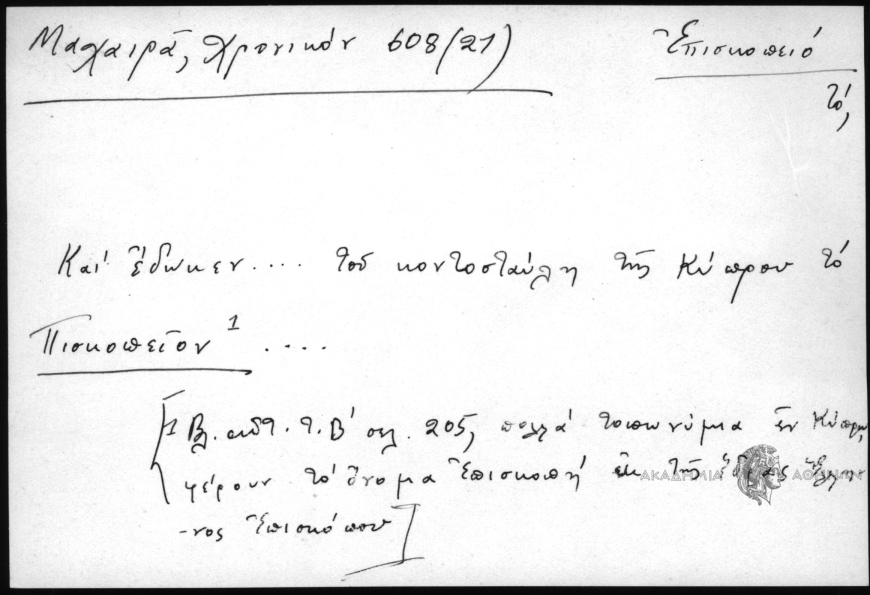 Μαχαιρᾶ, Χρονικόν 608/21)
Ἐπισκοπειό
τό,
Καὶ ἔδωκεν.... τοῦ κοντοσταύλη τῆς Κύπρου τὸ
Πισκοπεῖον 1 ....
[1 Βλ. αὐτ. τ. Β' σελ. 205, πολλά τοπωνύμια ἐν Κύπρῳ
φέρουν τὸ ὄνομα Ἐπισκοπή ἐκ τῆς ἕδρας
-νος Ἐπισκόπου]
ΑΚΑΔΗΜΙΑ ΑΘΗΝΩΝ